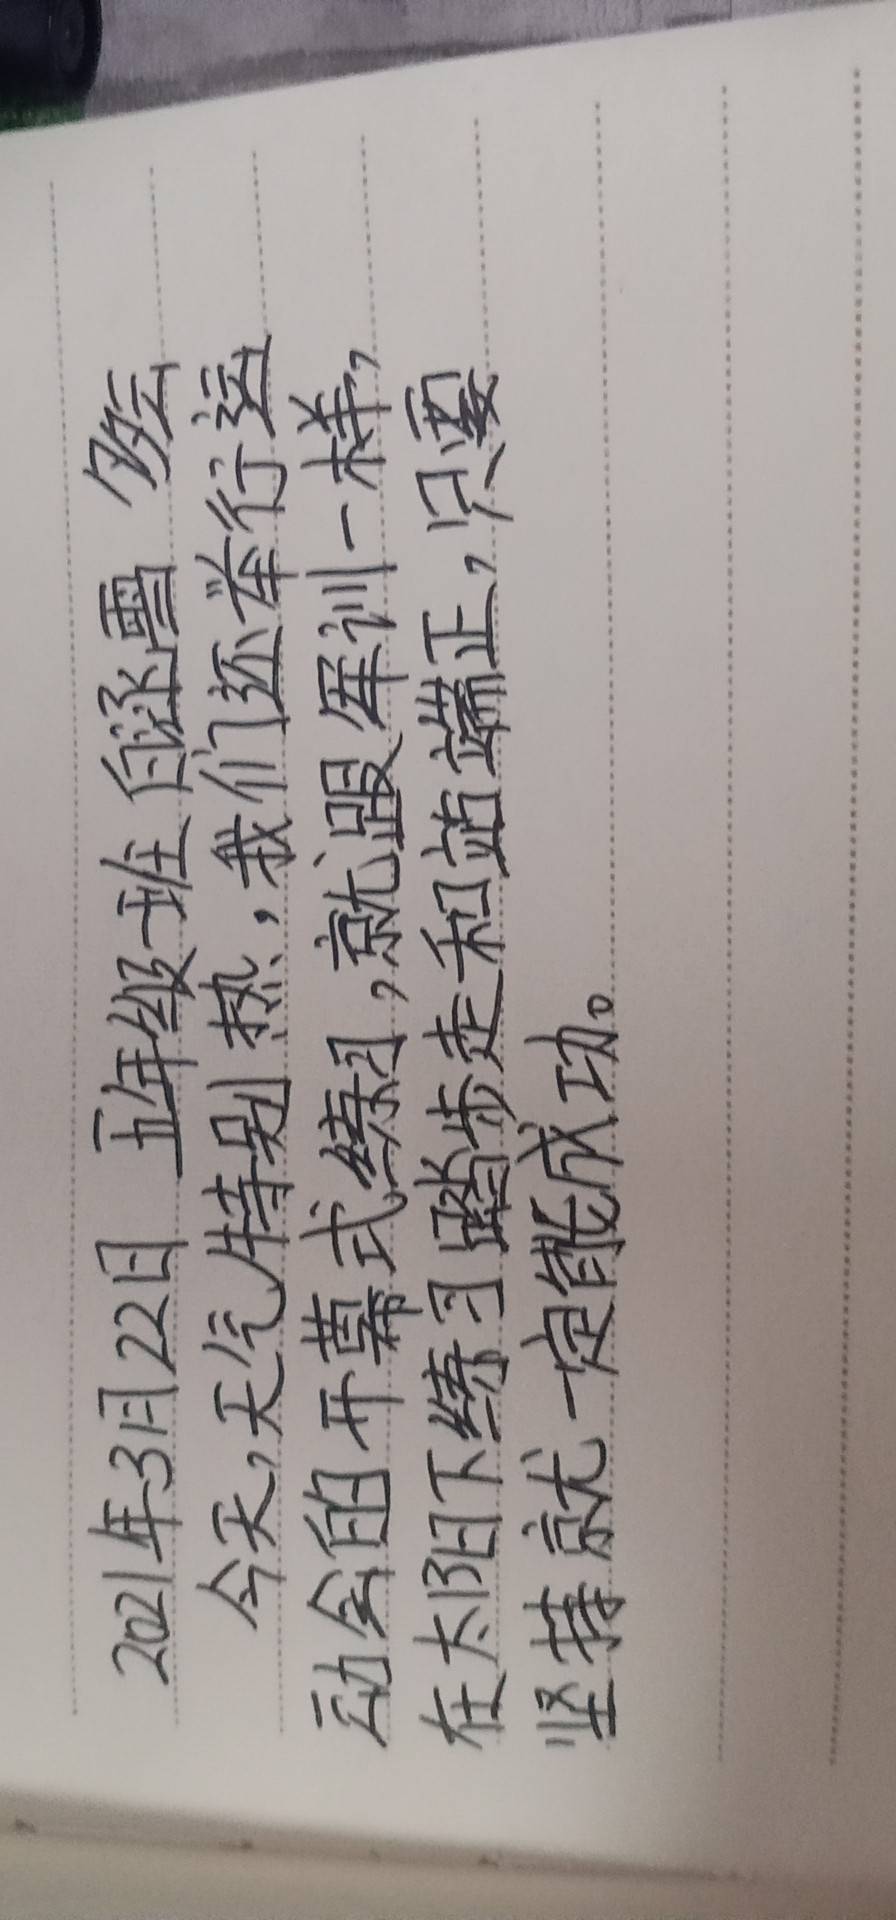 2021年3月22日 五年级一班 白涵雪
今天,天气特别热,我们还举行运
动会的开幕式练习,就跟军训一样,
在太阳下练习踏步走和站端正,只要
坚持就一定能成功。